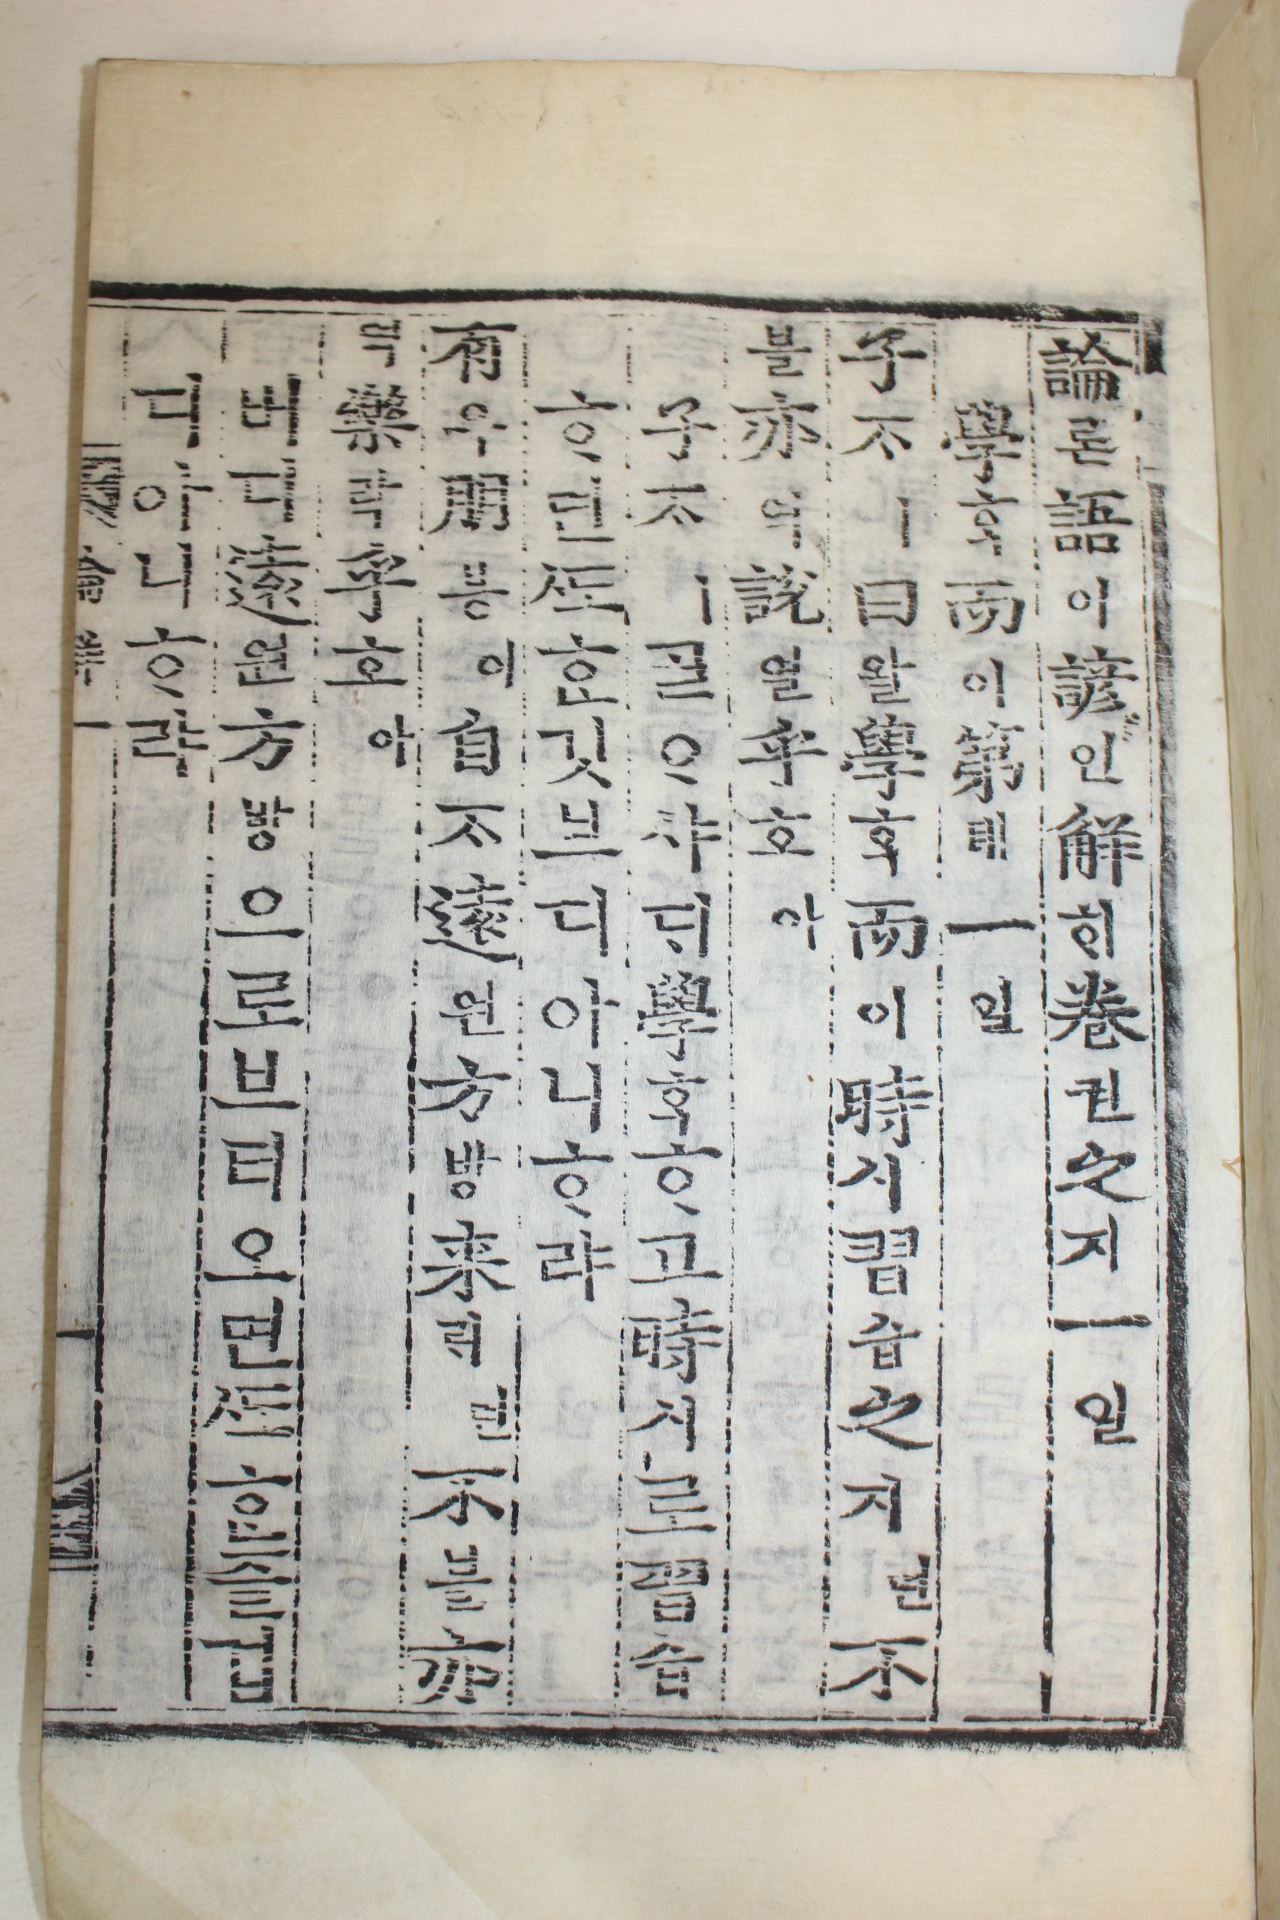 論론語어諺언解ᄒᆡ卷권之지一일
學ᄒᆞᆨ而이第뎨一일
子ᄌᆞㅣ曰왈學ᄒᆞᆨ而이時시習습之지면不
블亦역說열乎호아
子ᄌᆞㅣᄀᆞᆯᄋᆞ샤ᄃᆡ學ᄒᆞᆨᄒᆞ고時시로習습
ᄒᆞ면ᄯᅩᄒᆞᆫ깃브디아니ᄒᆞ랴
有유朋붕이自ᄌᆞ遠원方방來ᄅᆡ면不블亦
역樂락乎호아
벋이遠원方방으로브터오면ᄯᅩᄒᆞᆫ즐겁
디아니ᄒᆞ랴